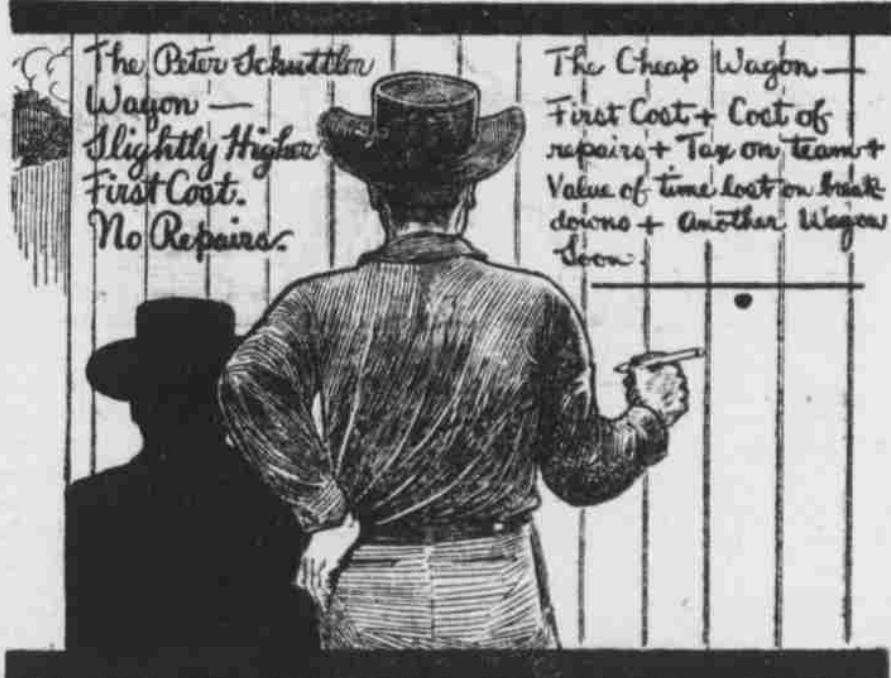 The Peter Schuttler
Wagon —
Slightly Higher
First Cost.
No Repairs.
The Cheap Wagon —
First Cost + Cost of
repairs + Tax on team +
Value of time lost on break
downs + Another Wagon
Soon.